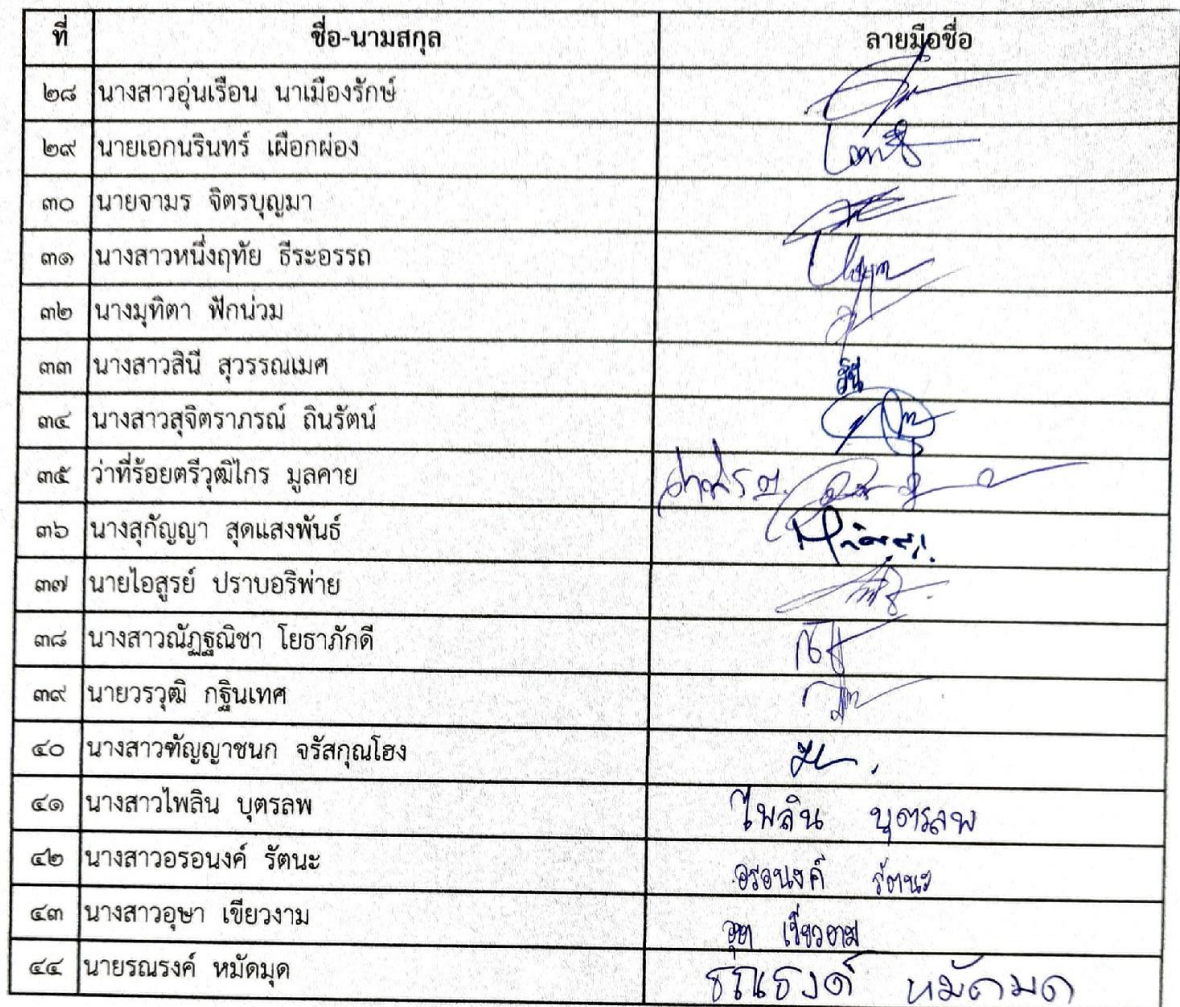 ที่ ชื่อ-นามสกุล ลายมือชื่อ
๒๘ นางสาวอุ่นเรือน นาเมืองรักษ์
๒๙ นายเอกนรินทร์ เผือกผ่อง
๓๐ นายจามร จิตรบุญมา
๓๑ นางสาวหนึ่งฤทัย ธีระอรรถ
๓๒ นางมุทิตา ฟักน่วม
๓๓ นางสาวสินี สุวรรณเมศ สินี
๓๔ นางสาวสุจิตราภรณ์ ถินรัตน์
๓๕ ว่าที่ร้อยตรีวุฒิไกร มูลคาย ว่าที่ ร.ต.
๓๖ นางสุกัญญา สุดแสงพันธ์
๓๗ นายไอสูรย์ ปราบอริพ่าย
๓๘ นางสาวณัฏฐณิชา โยธาภักดี
๓๙ นายวรวุฒิ กฐินเทศ
๔๐ นางสาวฑัญญาชนก จรัสกุณโฮง
๔๑ นางสาวไพลิน บุตรลพ ไพลิน บุตรลพ
๔๒ นางสาวอรอนงค์ รัตนะ อรอนงค์ รัตนะ
๔๓ นางสาวอุษา เขียวงาม อุษา เขียวงาม
๔๔ นายรณรงค์ หมัดมุด รณรงค์ หมัดมุด